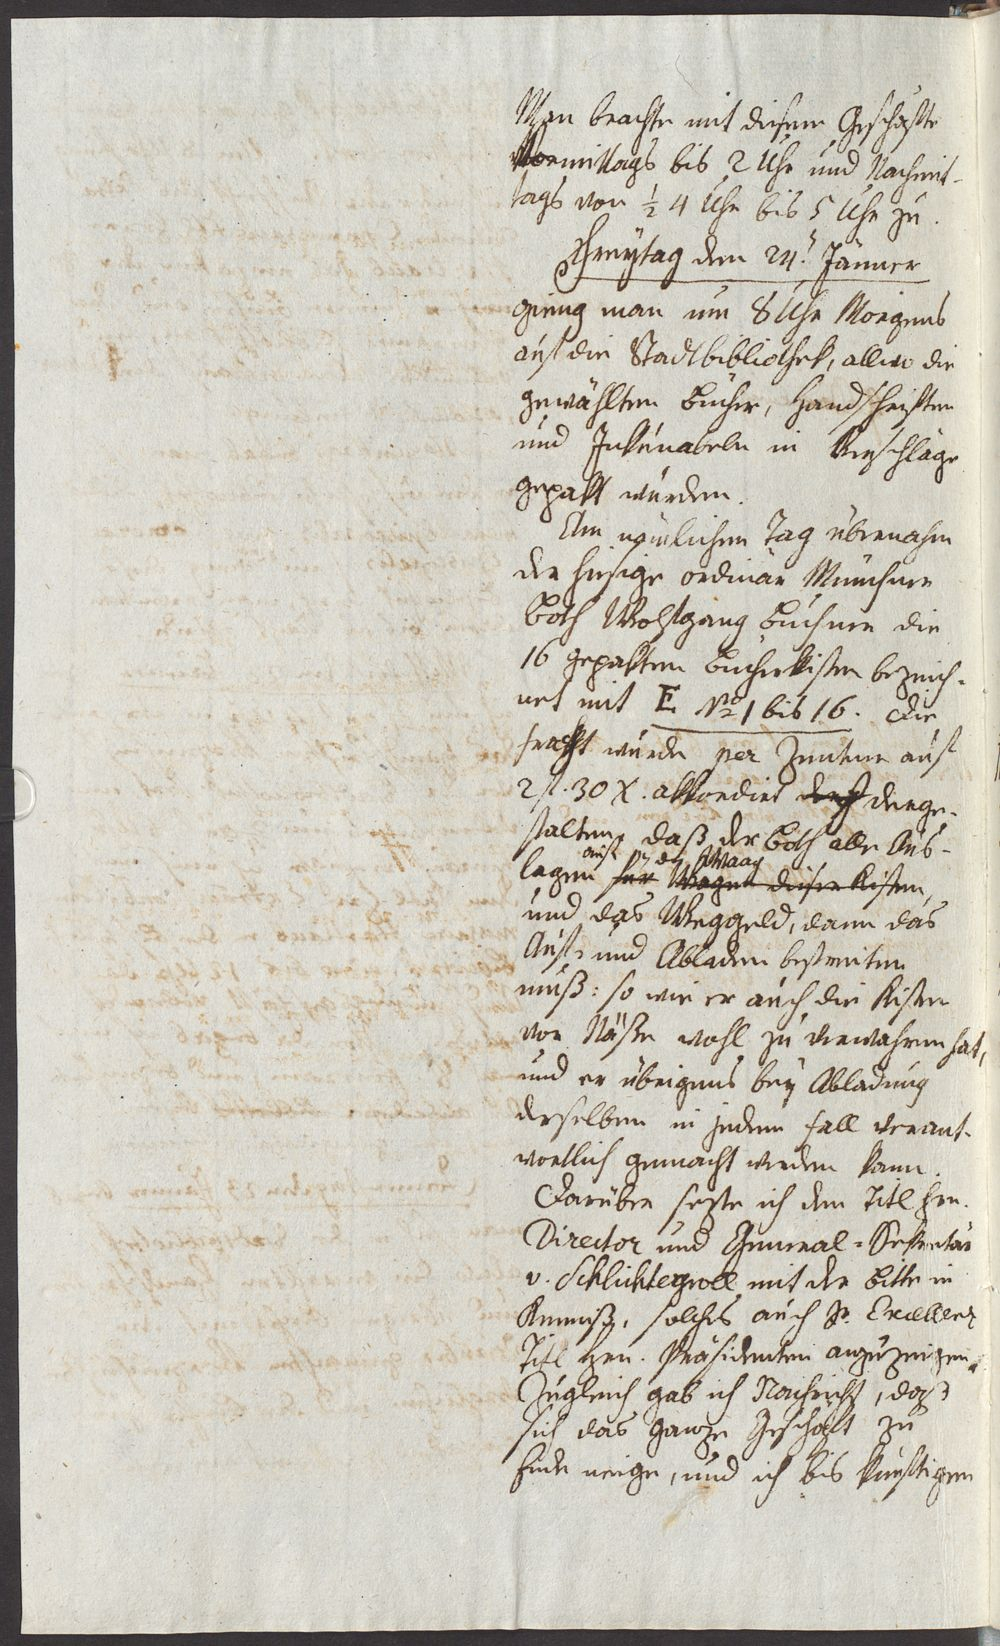 Man brachte mit diesem Geschäfte
Vormittags bis 2 Uhr und Nachmit-
tags von ½ 4 Uhr bis 5 Uhr zu.
Freÿtag den 24. Jänner
gieng man um 8 Uhr Morgens
auf die Stadtbibliothek, allwo die
gewählten Bücher, Handschriften
und Inkunabeln in Verschläge
gepakt wurden.
Am nämlichen Tag übernahm
der hiesige ordinär Münchner
Both Wolfgang Buchner die
16 gepakten Bücherkisten bezeich-
net mit E. No 1 bis 16. Die
Fracht wurde per Zentner auf
2 fl. 30 X. akkordirt derge-
stalten, daß der Both alle Aus-
auf der Waag
lagen für Wagen dieser Kisten,
und das Weggeld, dann das
Auf- und Abladen bestreiten
muß: so wie er auch die Kisten
vor Näße wohl zu verwahren hat,
und er übrigens beÿ Abladung
derselben in jedem Fall verant-
wortlich gemacht werden kann.
Darüber sezte ich den Titl Hrn.
Director und General-Sekretär
v. Schlichtegroll mit der Bitte in
Kenniß, solches auch Sr. Excellenz
Titl Hrn. Präsidenten anzuzeigen.
Zugleich gab ich Nachricht, daß
sich das ganze Geschäft zu
Ende neige, und ich bis künftigen